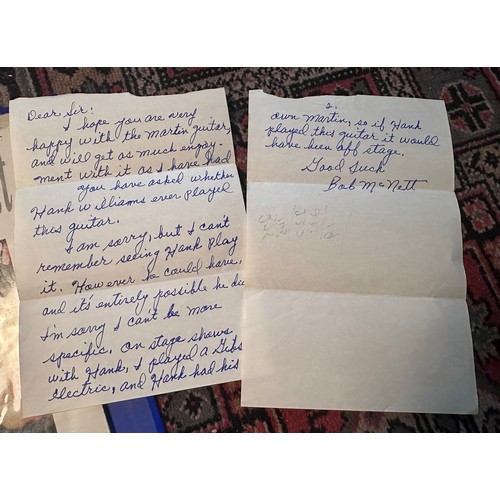 Dear Sir:
I hope you are very
happy with the Martin guitar,
and will get as much enjoy-
ment with it as I have had
You have asked whether
Hank Williams ever played
this guitar.
I am sorry, but I can't
remember seeing Hank play
it. However he could have,
and it's entirely possible he did
I'm sorry I can't be more
specific. On stage shows
with Hank, I played a Gibs
Electric, and Hank had his
2.
own Martin, so if Hank
played this guitar it would
have been off stage.
Good Luck
Bob McNett